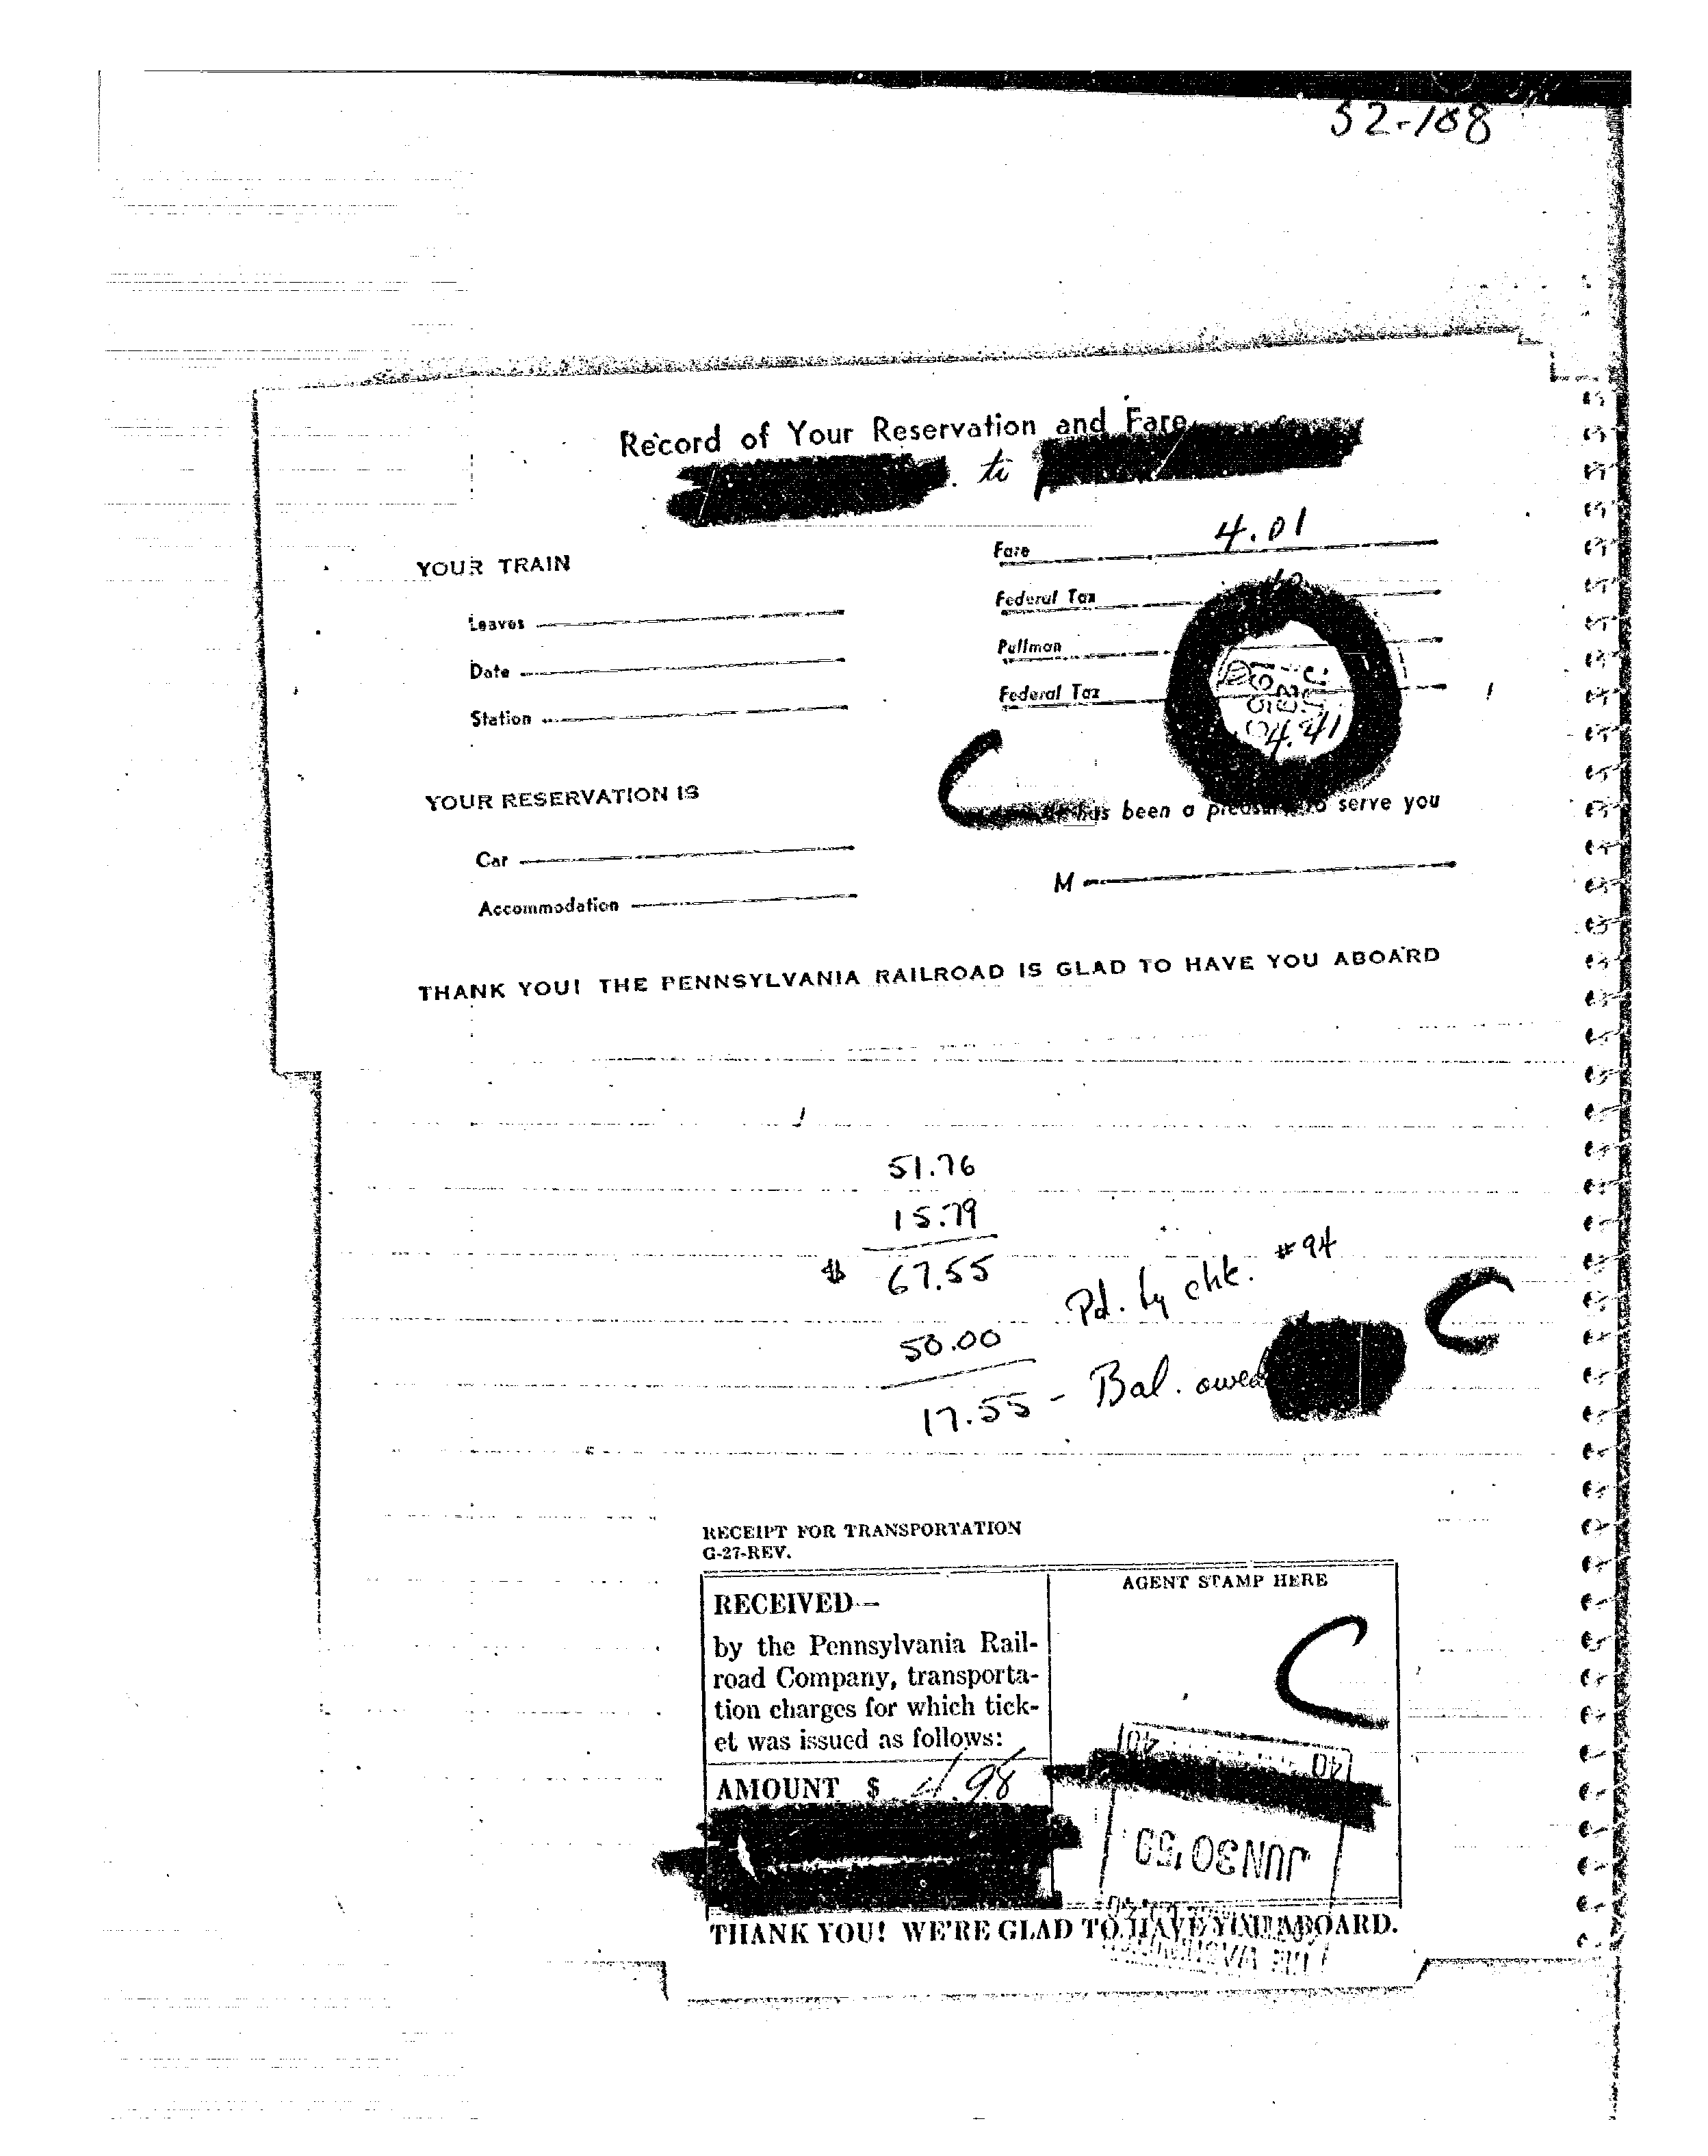 52-168
Record of Your Reservation and Fare
to
YOUR TRAIN
Leaves
Date
Station
Fare 4.01
Federal Tax 40
Pullman
Federal Tax
4.41
C
YOUR RESERVATION IS
has been a pleasure to serve you
Car
M
Accommodation
THANK YOU! THE PENNSYLVANIA RAILROAD IS GLAD TO HAVE YOU ABOARD
51.76
15.79
$ 67.55
50.00 Pd. by chk. #94
17.55 - Bal. owed
C
RECEIPT FOR TRANSPORTATION
G-27-REV.
RECEIVED—
by the Pennsylvania Rail-
road Company, transporta-
tion charges for which tick-
et was issued as follows:
AMOUNT $ 4.98
AGENT STAMP HERE
C
40 40
JUN 30 '59
THANK YOU! WE'RE GLAD TO HAVE YOU ABOARD.